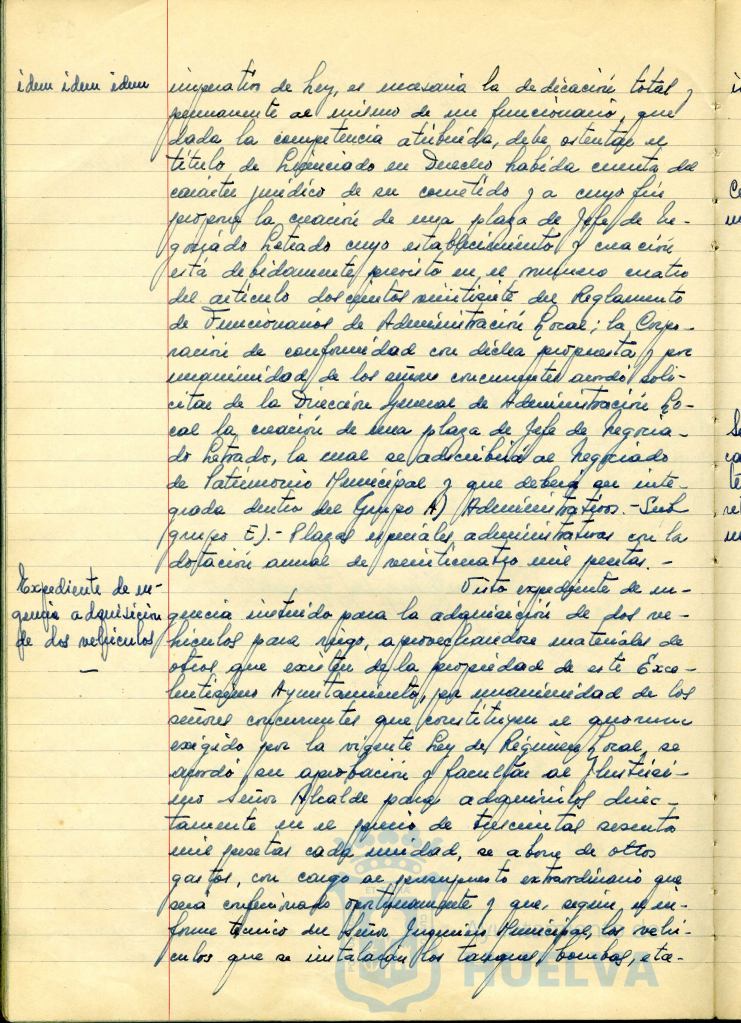 idem idem idem
imperativo de Ley, es necesaria la dedicación total y
permanente al mismo de un funcionario, que
dada la competencia atribuida, debe ostentar el
título de Licenciado en Derecho habida cuenta del
caracter jurídico de su cometido y a cuyo fin
propone la creación de una plaza de Jefe de Ne-
gociado Letrado cuyo establecimiento y creación
está debidamente previsto en el numero cuatro
del artículo doscientos veintisiete del Reglamento
de Funcionarios de Administración Local; la Corpo-
ración de conformidad con dicha propuesta y por
unanimidad de los señores concurrentes acordó soli-
citar de la Dirección General de Administración Lo-
cal la creación de una plaza de Jefe de Negocia-
do Letrado, la cual se adscribirá al Negociado
de Patrimonio Municipal y que deberá ser inte-
grada dentro del Grupo A) Administrativos.- Sub
grupo E).- Plazas especiales administrativas con la
dotación anual de veinticuatro mil pesetas. -
Expediente de ur-
gencia adquisición
de dos vehiculos
-
Visto expediente de ur-
gencia instruido para la adquisición de dos ve-
hiculos para riego, aprovechandose materiales de
otros que existen de la propiedad de este Exce-
lentisimo Ayuntamiento, por unanimidad de los
señores concurrentes que constituyen el quorum
exigido por la vigente Ley de Régimen Local, se
acordó su aprobación y facultar al Ilustrisi-
mo Señor Alcalde para adquirirlos direc-
tamente en el precio de trescientas sesenta
mil pesetas cada unidad, se abone de otros
gastos, con cargo al presupuesto extraordinario que
será confeccionado oportunamente y que, según el in-
forme tecnico del Señor Ingeniero Municipal, los vehi-
culos que se instalarán los tanques bombas, etc-
HUELVA